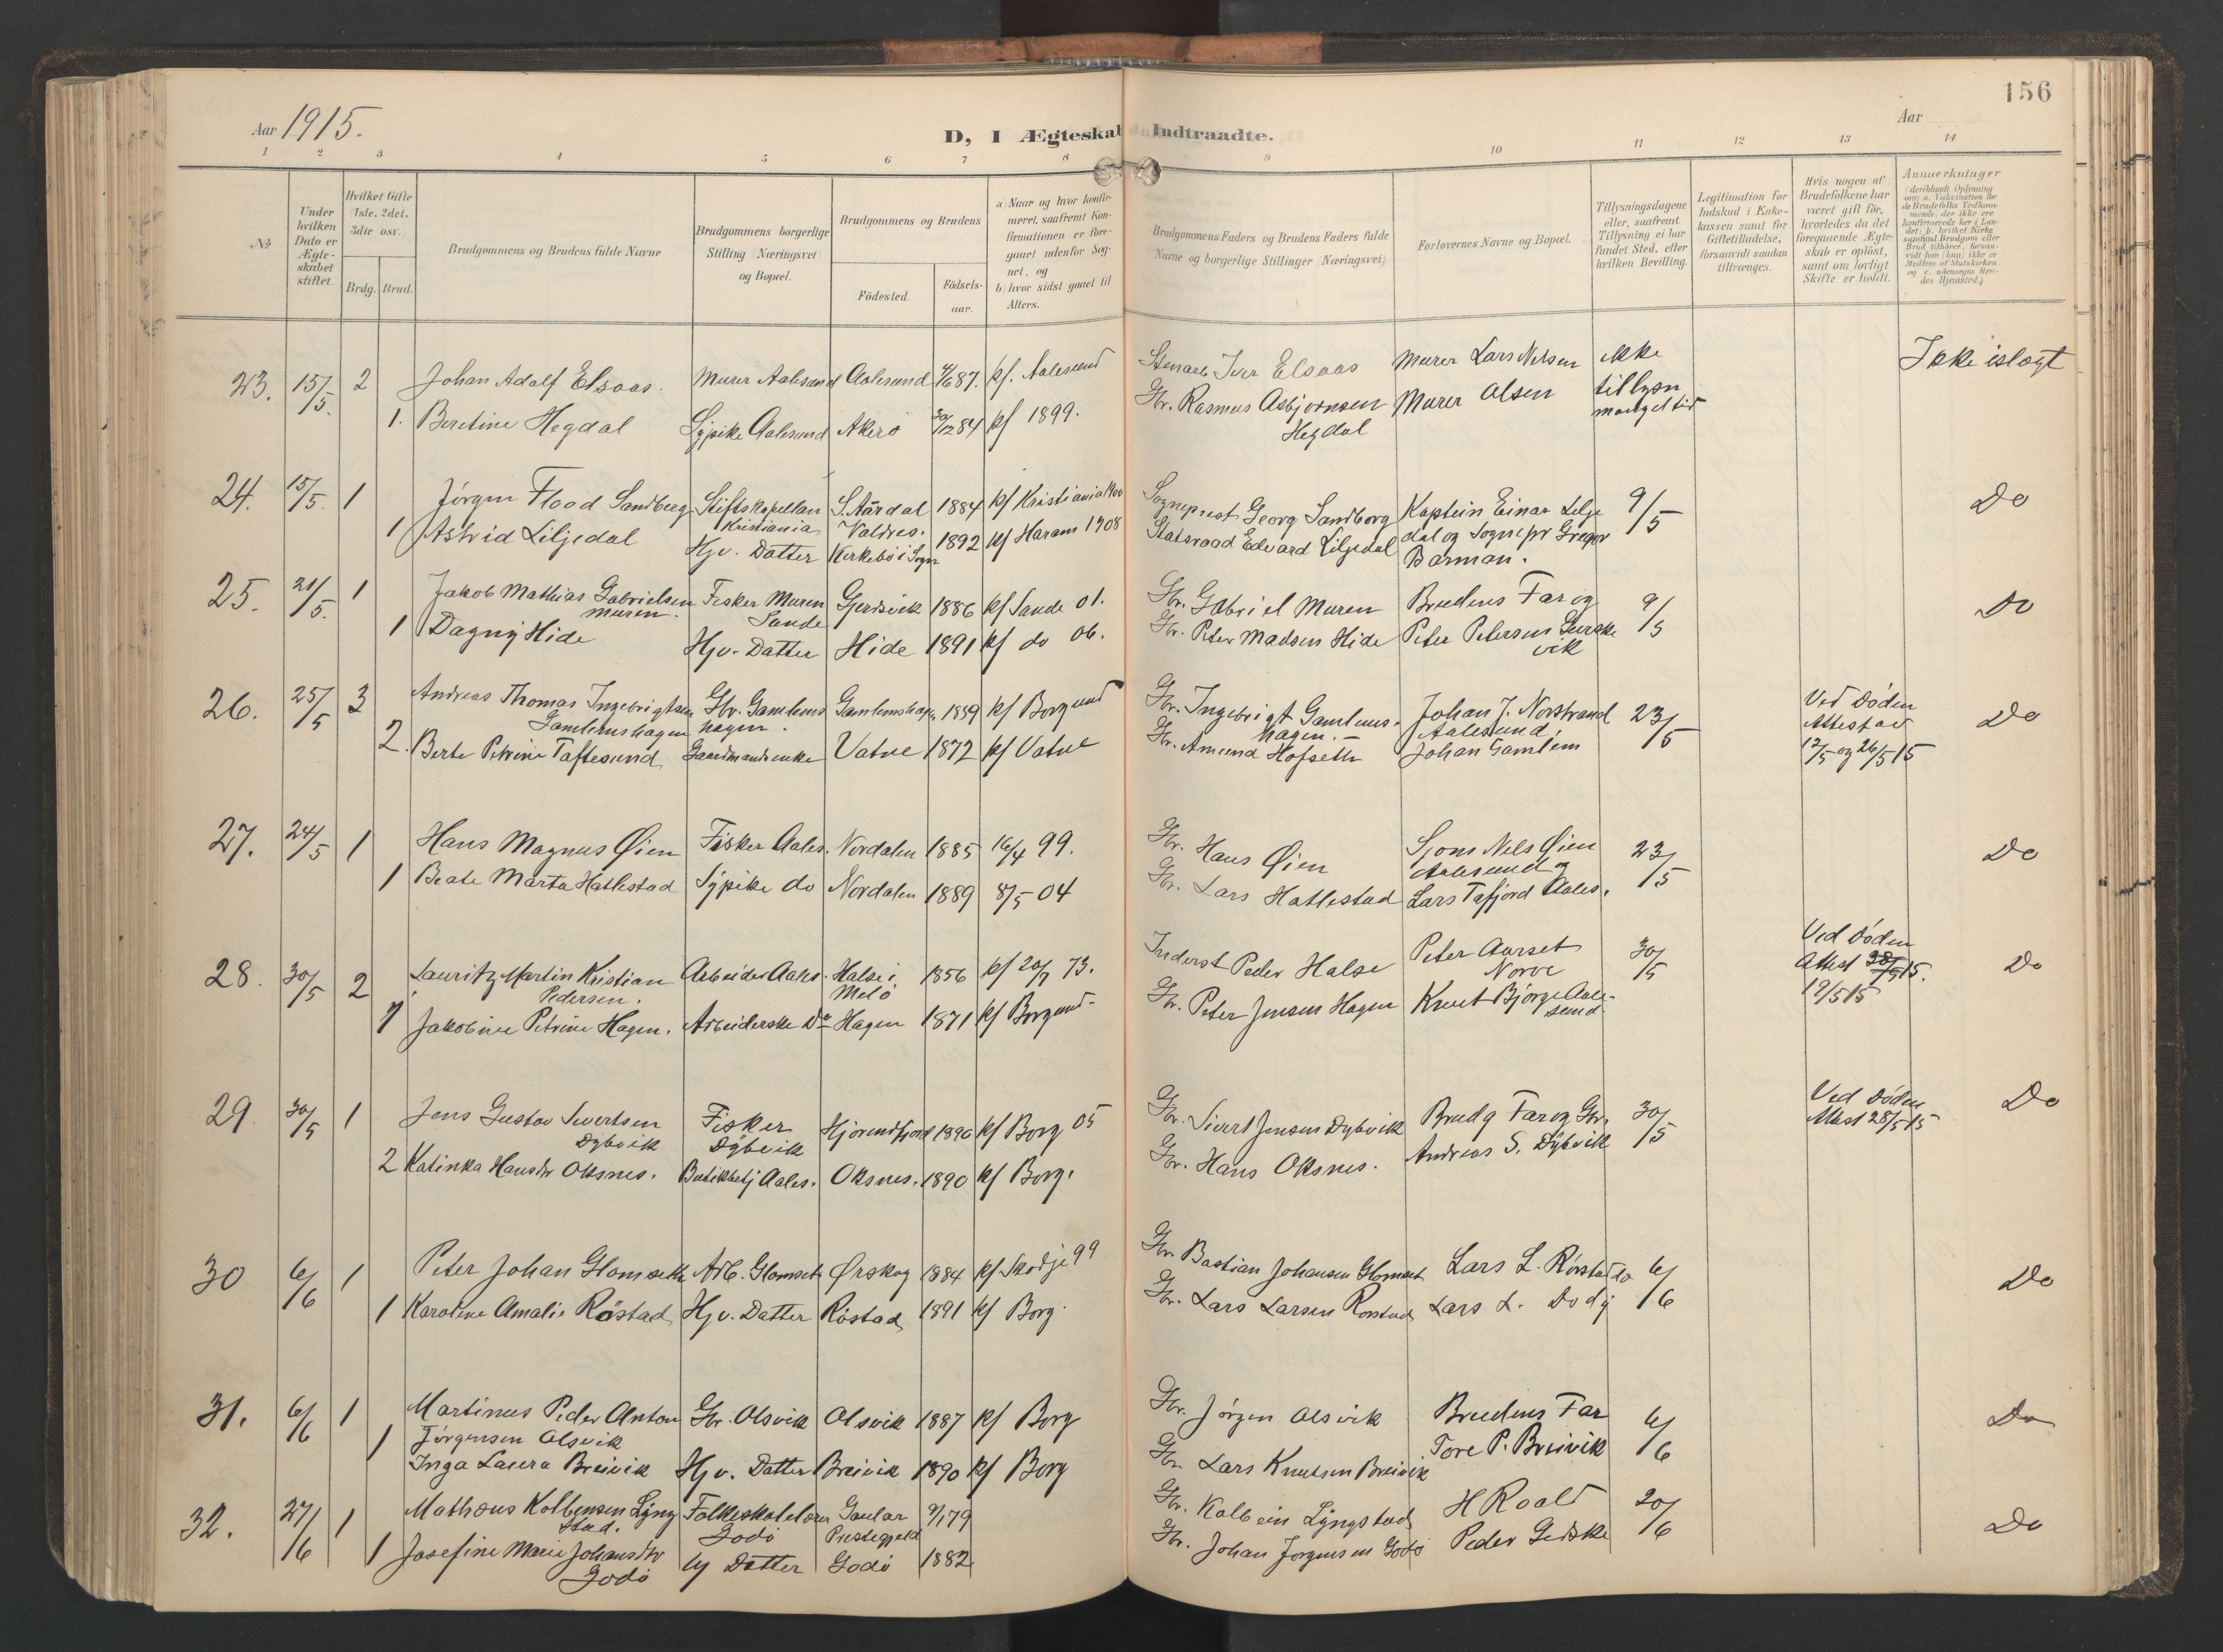 156
Aar 1915.
D, I Ægteskab Indtraadte.
Aar
1 2 3 4 5 6 7 8 9 10 11 12 13 14
No
Under hvilken Dato er Ægteskabet stiftet.
Hvilket Gifte (1ste, 2det, 3die osv.
Brdg. Brud.
Brudgommens og Brudens fulde Navne
Brudgommens borgerlige Stilling (Næringsvei) og Bopæl.
Brudgommens og Brudens
Fødested.
Fødselsaar.
a) Naar og hvor konfirmeret, saafremt Konfirmationen er foregaaet udenfor Sognet, og
b) hvor sidst gaaet til Alters.
Brudgommens Faders og Brudens Faders fulde Navne og borgerlige Stillinger (Næringsvei)
Forlovernes Navne og Bopæl.
Tillysningsdagene eller, saafremt Tillysning ei har fundet Sted, efter hvilken Bevilling.
Legitimation for Indskud i Enkekassen samt for Giftetilladelse, forsaavidt saadan tiltrænges.
Hvis nogen af Brudefolkene har været gift før, hvorledes da det foregaaende Ægteskab er opløst, samt om lovligt Skifte er holdt.
Anmerkninger
23. 15/5. 2 Johan Adolf Elsaas. Murer Aalesund Aalesund 87. kf. Aalesund Iver Elsaas Murer Lars Nelsen ikke Ikke islagt
1. Beretine Hegdal Sypike Aalesund Akerö 30/12 84 kf 1899. Gbr. Rasmus Asbjørnsen Hegdal Murer Olsen tillysn mangel tid
24. 15/5. 1 Jörgen Flood Sandberg Stiftskapellan Kristiania S. Aardal Valdres. 1884 kf Kristiania 1900 Sogneprest Georg Sandberg Kaptein Einar Lilje 9/5 Do
1 Astrid Liljedal Hjv. Datter Kirkebö i Sogn 1892 kf Haram 1908 Statsraad Edvard Liljedal dal og Sognepr Gregor Barman.
25. 21/5. 1 Jakob Mathias Gabrielsen Muren. Fisker Muren Sande Gjerdsvik 1886 kf Sande 01. Gbr. Gabriel Muren Brudens Far og 9/5 Do
1 Dagny Hide Hjv. Datter Hide 1891 kf do 06. Gbr. Peter Madsen Hide Peter Petersen Gurskevik
26. 25/5 3 Andreas Thomas Ingebrigtsen Gamlemshagen Gbr. Gamlemshagen. Gamlemshagen 1859 kf Borgund Gbr. Ingebrigt Gamlemshagen. Johan J. Norstrand Aalesund, 23/5 Ved Döden Attester 12/5 og 26/5 15 Do
2. Berte Petrine Taftesund Gaardmandsenke Vatne 1872 kf Vatne Gbr. Amund Hofseth Johan Gamlem
27. 24/5 1 Hans Magnus Øien Fisker Aales. Nordalen 1885 16/4 99. Gbr. Hans Øien Sjöm Nels Øien Aalesund og 23/5 Do
1 Beate Marta Hatlestad Sypike do Nordalen 1889 8/5 04 Gbr. Lars Hatlestad Lars Tafjord Aales.
28. 30/5 2 Lauritz Martin Kristian Pedersen. Arbeider Aales. Halse i Melö 1856 kf 20/7 73. Inderst Peder Halse Peter Aarset Norve 30/5 Ved döden Attest 15. 19/5 15 Do
1 Jakobine Petrine Hagen. Arbeiderske Do Hagen 1871 kf Borgund Gbr. Peter Jensen Hagen Knut Bjørge Aalesund
29. 30/5 1 Jens Gustav Sivertsen Dybvik Fisker Dybvik Hjörendfjord 1890 kf Borg 05 Gbr. Sivert Jensen Dybvik Brudg Far og Gbr. 30/5 Ved Döden Attest 28/5 15 Do
2 Katinka Hansdtr Oksnes. Butikbetj Aales. Oksnes. 1890 kf Borg. Gbr. Hans Oksnes. Andreas S. Dybvik
30 6/6 1 Peter Johan Glomseth Arb. Glomset Ørskog 1884 kf Skodje 99 Gbr Bastian Johansen Glomset Lars L. Röstad 6/6 Do
1 Karoline Amalie Röstad Hjv. Datter Röstad 1891 kf Borg. Gbr. Lars Larsen Röstad Lars L. Do
31. 6/6 1 Martinus Peder Anton Jörgensen Alsvik Gbr. Alsvik Alsvik 1887 kf Borg Gbr. Jörgen Alsvik Brudens Far 6/6 Do
1 Inga Laura Breivik Hjv. Datter Breivik 1890 kf Borg Gbr. Lars Knutsen Breivik Tore P. Breivik
32. 27/6 1 Mathæus Kolbensen Lyngstad. Folkeskolelærer Godö Gaular Prestegjeld 79 Gbr. Kolbein Lyngstad H Roald 20/6 Do
1 Josefine Marie Johansdtr Godö Datter Godö 1882 Gbr. Johan Jørgensen Godö Peder Gjedske